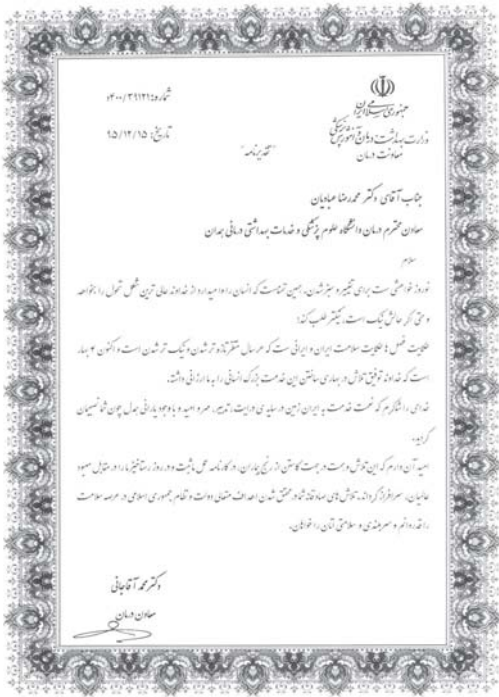 شماره: ۴۰۰/۳۹۱۲۱د
تاریخ: ۹۵/۱۲/۱۵
جمهوری اسلامی ایران
وزارت بهداشت، درمان و آموزش پزشکی
معاونت درمان
"تقدیرنامه"
جناب آقای دکتر محمدرضا عبادیان
معاون محترم درمان دانشگاه علوم پزشکی و خدمات بهداشتی درمانی همدان
سلام
نوروز خواهشی ست برای تغییر و سبز شدن، همین تمناست که انسان را وا میدارد از خداوند عالی ترین شکل تحول را بخواهد
و حتی اگر حالش نیک است، نیکتر طلب کند؛
حکایت فصل ها حکایت سلامت ایران و ایرانی ست که هر سال منتظر تازه تر شدن و نیک تر شدن است و اکنون ۴ بهار
است که خداوند توفیق تلاش در بهاری ساختن این خدمت بزرگ انسانی را به ما ارزانی داشته.
خدای را شاکرم که نعمت خدمت به ایران زمین در سایه ی درایت، تدبیر، صبر و امید و با وجود یارانی همدل چون شما نصیبمان
گردید.
امید آن دارم که این تلاش و همت در جهت کاستن از رنج بیماران، در کارنامه عمل ما ثبت و در روز رستاخیز ما را در مقابل معبود
عالمیان، سرافراز گرداند. تلاش های صادقانه شما در محقق شدن اهداف متعالی دولت و نظام جمهوری اسلامی در عرصه سلامت
را قدردانم و سربلندی و سلامتی تان را خواهان.
دکتر محمد آقاجانی
معاون درمان